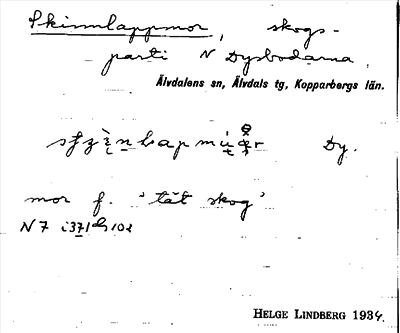 Skinnlappmor, skogs-
parti N Dysbodarna,
Älvdalens sn, Älvdals tg, Kopparbergs län.
Dy.
mor f. 'tät skog'
N7
HELGE LINDBERG 1934.